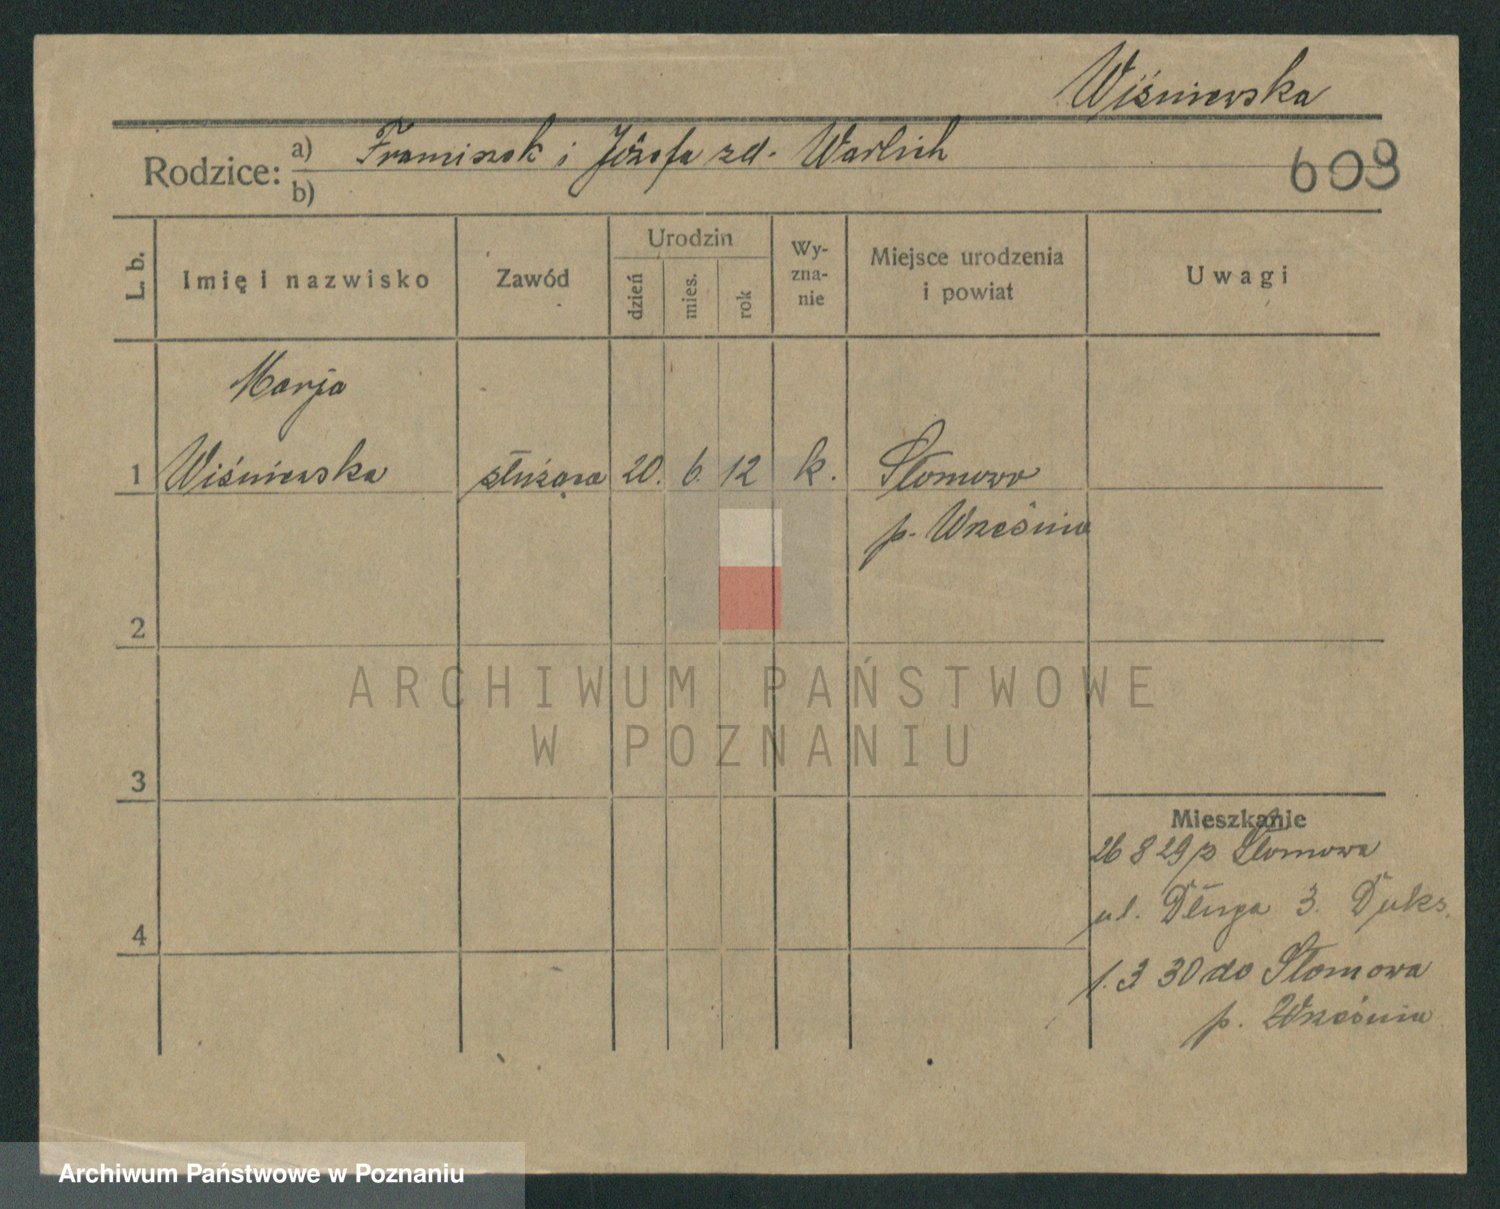 Wiśniewska
Rodzice: a) Franciszek i Józefa zd. Warlich
b)
609
L. b.
Imię i nazwisko
Zawód
Urodzin
dzień
mies.
rok
Wy-
zna-
nie
Miejsce urodzenia
i powiat
Uwagi
Marja
1 Wiśniewska służąca 20. 6. 12 k. Słomowo
p. Września
2
ARCHIWUM PAŃSTWOWE
W POZNANIU
3
Mieszkanie
26 8 29 z Słomowa
ul. Długa 3.
4
1. 3 30 do Słomowa
p. Września
Archiwum Państwowe w Poznaniu